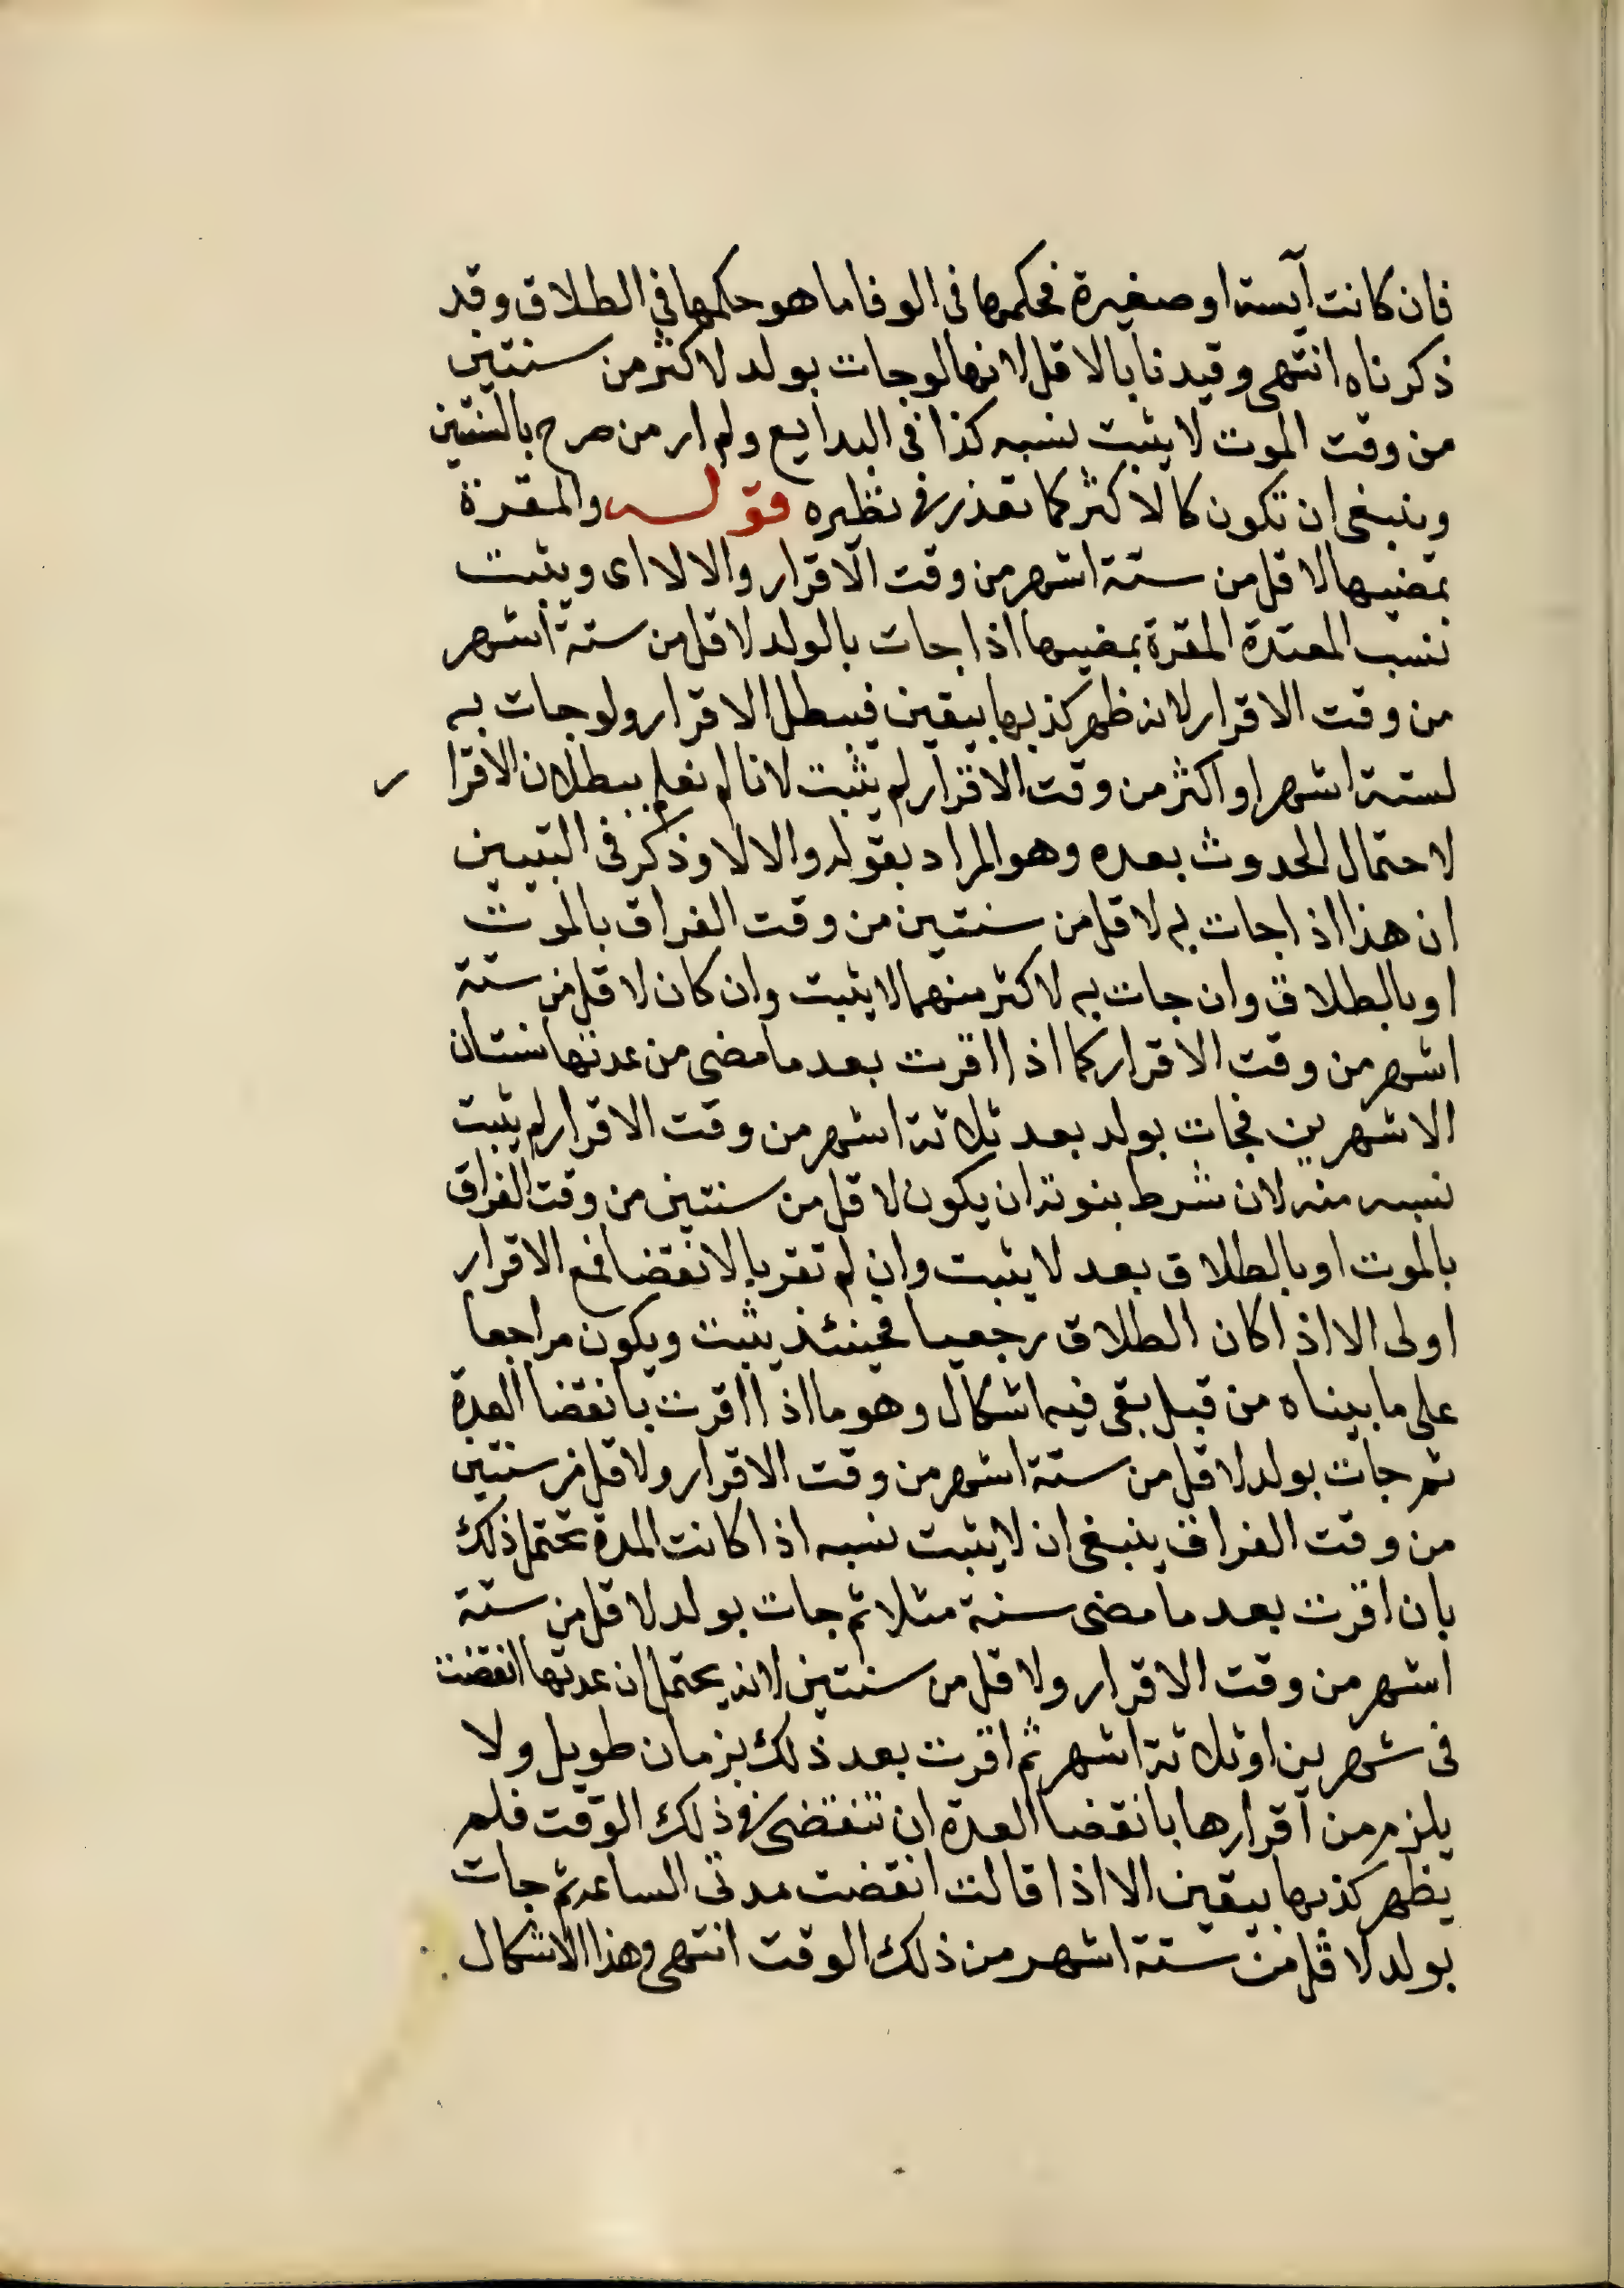 فان كانت آيسة او صغيرة فحكمها فى الوفا ما هو حكمها فى الطلاق وقد
ذكرناه انتهى وقيدنا بالاقل لانها لو جات بولد لاكثر من سنتين
من وقت الموت لا يثبت نسبه كذا فى البدايع ولم ار من صرح بالسنتين
وينبغى ان تكون كالاكثر كما تقدر فى نظيره قوله والمقرة
بمضيها لاقل من ستة اشهر من وقت الاقرار والا لا اى ويثبت
نسب المعتدة المقرة بمضيها اذا جات بالولد لاقل من ستة اشهر
من وقت الاقرار لانه ظهر كذبها بيقين فبطل الاقرار ولو جات به
لستة اشهر او اكثر من وقت الاقرار لم يثبت لانا لم نعلم ببطلان الاقرا ر
لاحتمال الحدوث بعده وهو المراد بقوله والا لا وذكر فى التبيين
ان هذا اذا جات به لاقل من سنتين من وقت الفراق بالموت
او بالطلاق وان جات به لاكثر منهما لا يثبت وان كان لاقل من ستة
اشهر من وقت الاقرار كما اذا اقرت بعد ما مضى من عدتها سنتان
الا شهرين فجات بولد بعد ثلاثة اشهر من وقت الاقرار لم يثبت
نسبه منه لان شرط ثبوته ان يكون لاقل من سنتين من وقت الفراق
بالموت او بالطلاق بعد لا يثبت وان لم تقر بالانقضا فمع الاقرار
اولى الا اذا كان الطلاق رجعيا فحينئذ يثبت ويكون مراجعا
على ما بيناه من قبل بقى فيه اشكال وهو ما اذا اقرت بانقضا العدة
ثم جات بولد لاقل من ستة اشهر من وقت الاقرار ولاقل من سنتين
من وقت الفراق ينبغى ان لا يثبت نسبه اذا كانت المدة تحتمل ذلك
بان اقرت بعد ما مضى سنة مثلا ثم جات بولد لاقل من ستة
اشهر من وقت الاقرار ولاقل من سنتين لانه يحتمل ان عدتها انقضت
فى شهرين او ثلاثة اشهر ثم اقرت بعد ذلك بزمان طويل ولا
يلزم من اقرارها بانقضا العدة ان تنقضى فى ذلك الوقت فلم
يظهر كذبها بيقين الا اذا قالت انقضت عدتى الساعة ثم جات
بولد لاقل من ستة اشهر من ذلك الوقت انتهى وهذا الاشكال